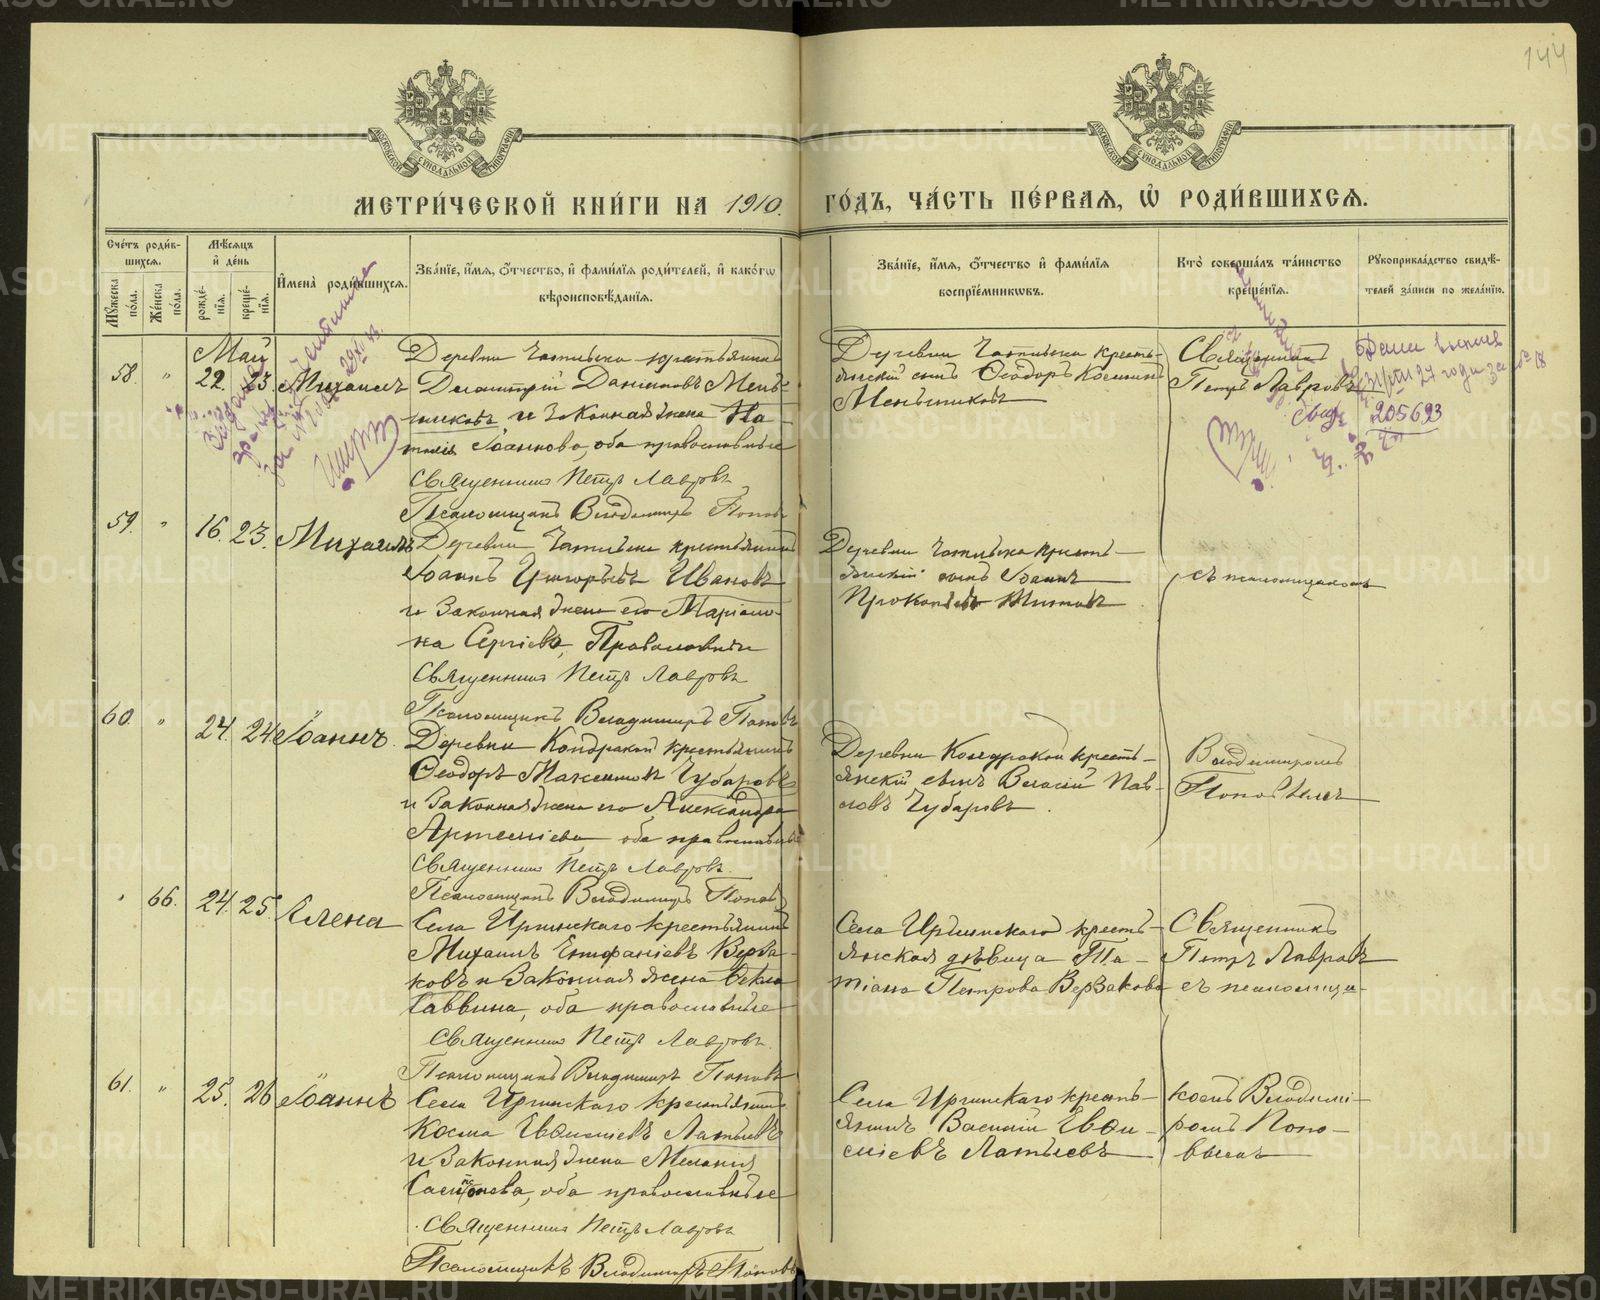 144
МОСКОВСКОЙ СУНОДАЛЬНОЙ ТИПОГРАФІИ
МОСКОВСКОЙ СУНОДАЛЬНОЙ ТИПОГРАФІИ
МЕТРИ́ЧЕСКОЙ КНИ́ГИ НА 1910. ГО́ДЪ, ЧА́СТЬ ПЕ́РВАЯ, Ѡ҆ РОДИ́ВШИХСЯ.
Сче́тъ роди́вшихся.
Мꙋ́жеска по́ла.
Же́нска по́ла.
Мѣ́сяцъ и҆ де́нь
рожде́нїя.
креще́нїя.
И҆мена̀ роди́вшихся.
Зва́нїе, и҆́мя, ѻ҆́тчество, и҆ фами́лїя роди́телей, и҆ како́гѡ
вѣроисповѣ́данїя.
Зва́нїе, и҆́мя, ѻ҆́тчество и҆ фами́лїя
воспрїе́мникѡвъ.
Кто̀ соверша́лъ та́инство
креще́нїя.
Рꙋкоприкла́дство свидѣ́телей за́писи по жела́нїю.
Май
58. " 22. 23. Михаилъ
Деревни Чатлыка крестьянинъ
Димитрій Даниловъ Мень-
шиковъ и законная жена На-
талія Іоаннова, оба православные
Священникъ Петръ Лавровъ
Псаломщикъ Владимиръ Поповъ
Деревни Чатлыка кресть-
янскій сынъ Ѳеодоръ Косминъ
Меньшиковъ
Священникъ
Петръ Лавровъ
205693
59. " 16. 23. Михаилъ
Деревни Чатлыка крестьянинъ
Іоаннъ Григорьевъ Ивановъ
и законная жена его Маріам-
на Сергіева, Православные
Священникъ Петръ Лавровъ
Псаломщикъ Владимиръ Поповъ
Деревни Чатлыка кресть-
янскій сынъ Іоаннъ
Прокопьевъ Титовъ
съ псаломщикомъ
60. " 24. 24. Іоаннъ.
Деревни Кондраной крестьянинъ
Ѳеодоръ Максимовъ Чубаровъ
и законная жена его Александра
Артеміева оба православные
Священникъ Петръ Лавровъ.
Псаломщикъ Владимиръ Поповъ
Деревни Кондраной кресть-
янскій сынъ Василій Пав-
ловъ Чубаровъ.
Владимиромъ
Поповымъ
66. 24. 25. Елена
Села Иргинскаго крестьянинъ
Михаилъ Епифаніевъ Верза-
ковъ и законная жена Ѳекла
Саввина, оба православные
Священникъ Петръ Лавровъ.
Псаломщикъ Владимиръ Поповъ
Села Иргинскаго кресть-
янская дѣвица Та-
тіана Петрова Верзакова
Священникъ
Петръ Лавровъ
съ псаломщи-
61. " 25. 26. Іоаннъ
Села Иргинскаго крестьянинъ
Косма Евѳиміевъ Латыевъ
и законная жена Меланія
Самсонова, оба православные
Священникъ Петръ Лавровъ
Псаломщикъ Владимиръ Поповъ
Села Иргинскаго кресть-
янинъ Василій Евѳи-
міевъ Латыевъ
комъ Владими-
ромъ Попо-
вымъ
METRIKI.GASO-URAL.RU